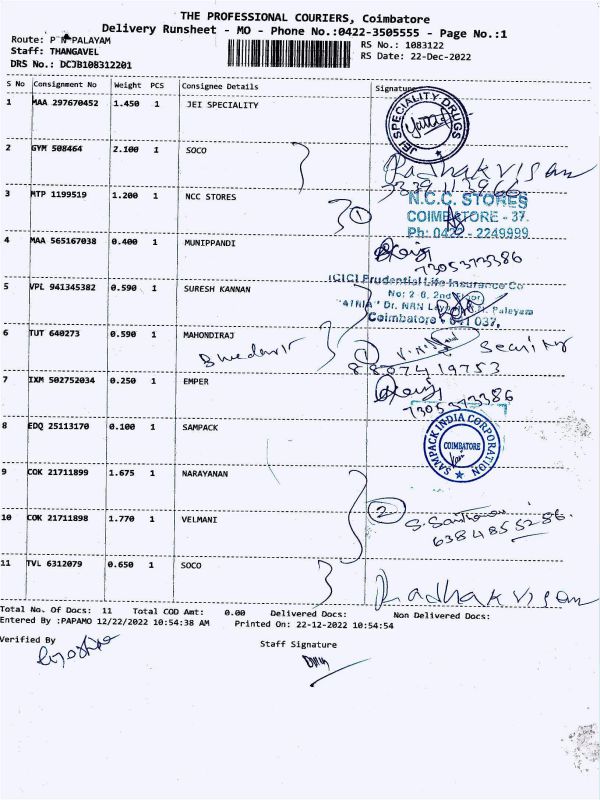 THE PROFESSIONAL COURIERS, Coimbatore
Delivery Runsheet - MO - Phone No.:0422-3505555 - Page No.:1
Route: P N PALAYAM
RS No.: 1083122
Staff: THANGAVEL
RS Date: 22-Dec-2022
DRS No.: DCJB108312201
S No Consignment No Weight PCS Consignee Details Signature
1 MAA 297670452 1.450 1 JEI SPECIALITY
JEI SPECIALITY DRUGS
2 GYM 508464 2.100 1 SOCO
Radhakrisan
3 MTP 1199519 1.200 1 NCC STORES
N.C.C. STORES
1 COIMBATORE - 37.
Ph: 0422 - 2249999
4 MAA 565167038 0.400 1 MUNIPPANDI
7305373386
5 VPL 941345382 0.590 1 SURESH KANNAN
ICICI Prudential Life Insurance Co
No: 2-6, 2nd Floor
Dr. NRN Layout, P. N. Palayam
Coimbatore - 641 037.
6 TUT 640273 0.590 1 MAHONDIRAJ
1
8807419753
7 IXM 502752034 0.250 1 EMPER
7305373386
8 EDQ 25113170 0.100 1 SAMPACK
SAMPACK INDIA CORPORATION
COIMBATORE
9 COK 21711899 1.675 1 NARAYANAN
2
10 COK 21711898 1.770 1 VELMANI
6384855286.
11 TVL 6312079 0.650 1 SOCO
Radhakrisan
Total No. Of Docs: 11 Total COD Amt: 0.00 Delivered Docs: Non Delivered Docs:
Entered By :PAPAMO 12/22/2022 10:54:38 AM Printed On: 22-12-2022 10:54:54
Verified By
Staff Signature